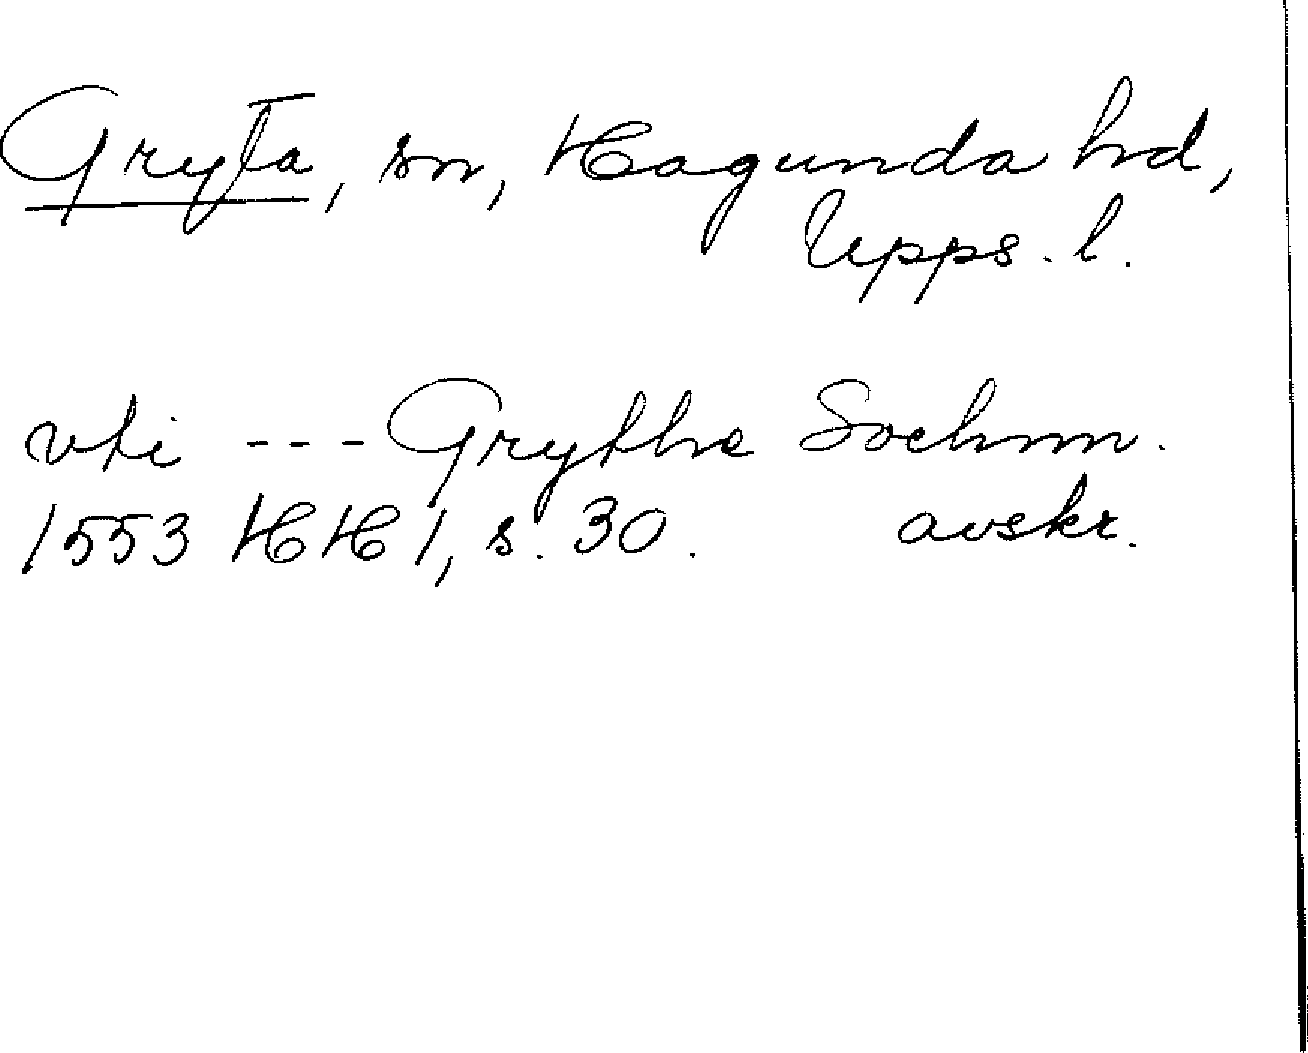 Gryta, sn, Hagunda hd,
Upps. l.
vti --- Grythe Sochnn.
1553 HH 1, s. 30. avskr.